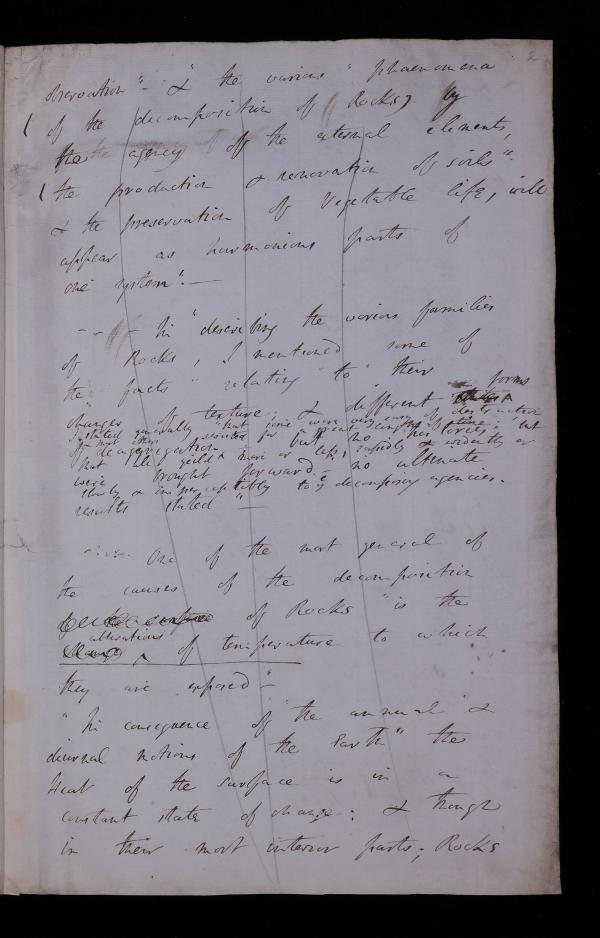 2
observation" - & " the various " phaenomena
( of the decomposition of Rocks) by
the agency of the external elements,
( the production & renovation of soils".
& the preservation of Vegetable life, will
appear as harmonious parts of
one system". —
- - - In "describing the various families
of Rocks, I mentioned some of
the facts " relating " to " their
changes of texture, & different forms
stated generally that some were very
of deaggregation but no
but all yield more or less, rapidly & evidently or
were brought forward. — no alternate
slowly & imperceptibly to decomposing agencies.
results stated " —
One of the most general of
the causes of the decomposition
of Rocks " is the
alterations
of temperature to which
they are exposed" —
" In consequence of " the annual " &
diurnal motions of the Earth " the
Heat of the surface is in a
constant state of change: & though
in their most interior parts, Rocks